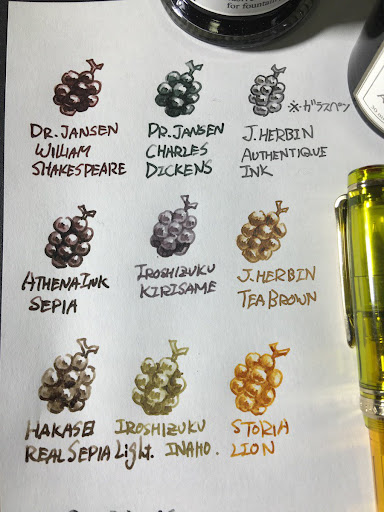 for fountain
DR. JANSEN
WILLIAM
SHAKESPEARE
DR. JANSEN
CHARLES
DICKENS
※ガラスペン
J. HERBIN
AUTHENTIQUE
INK
ATHENA INK
SEPIA
IROSHIZUKU
KIRISAME
J. HERBIN
TEA BROWN
HAKASE
REAL SEPIA Light.
IROSHIZUKU
INAHO.
STORIA
LION